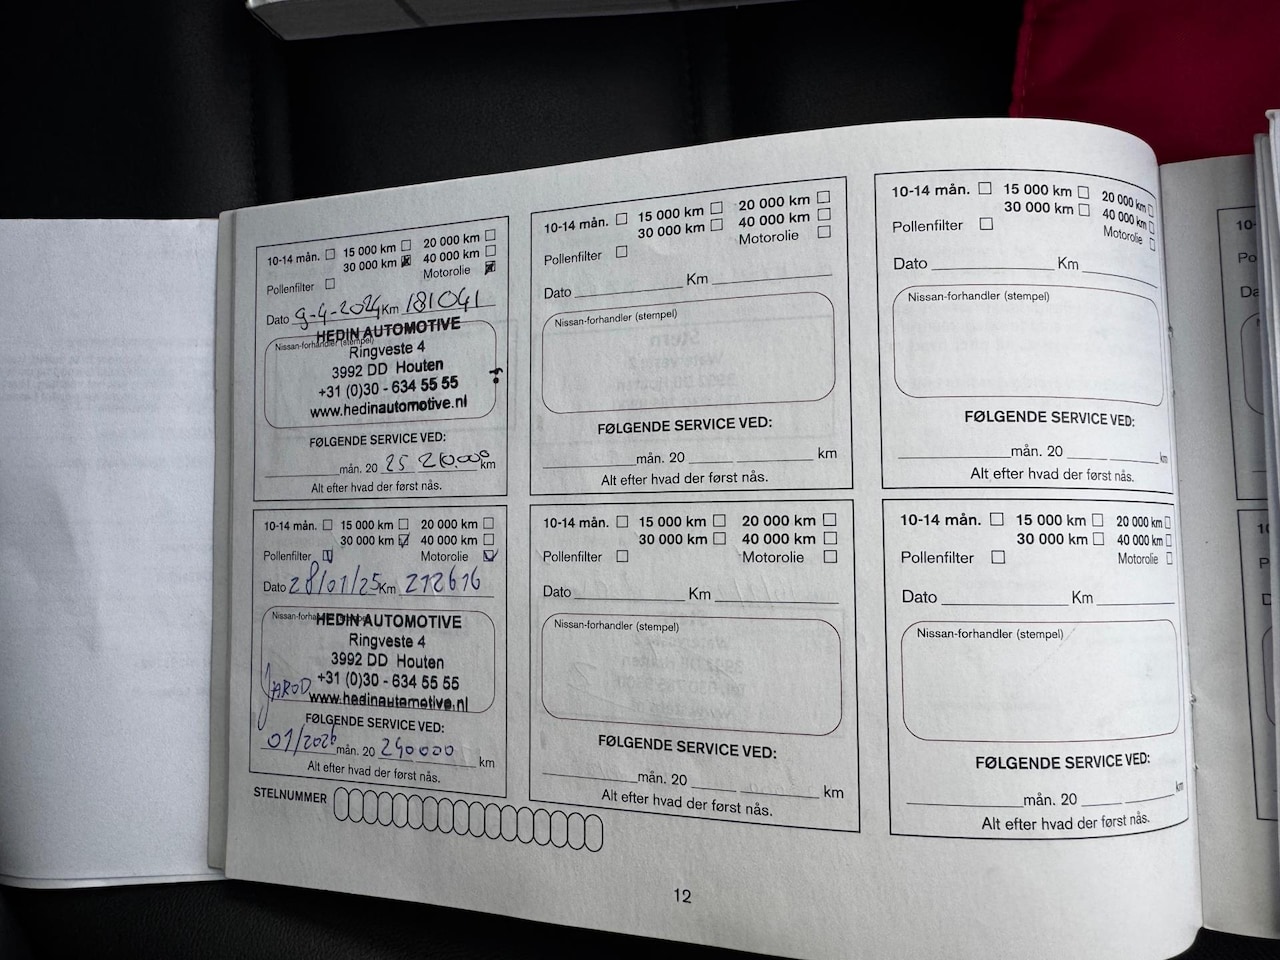 10-14 mån. 15 000 km 20 000 km
30 000 km 40 000 km
Pollenfilter Motorolie
Dato 9-4-2024 Km 181041
Nissan-forhandler (stempel)
HEDIN AUTOMOTIVE
Ringveste 4
3992 DD Houten
+31 (0)30 - 634 55 55
www.hedinautomotive.nl
FØLGENDE SERVICE VED:
mån. 20 25 210.000 km
Alt efter hvad der først nås.
10-14 mån. 15 000 km 20 000 km
30 000 km 40 000 km
Pollenfilter Motorolie
Dato Km
Nissan-forhandler (stempel)
FØLGENDE SERVICE VED:
mån. 20 km
Alt efter hvad der først nås.
10-14 mån. 15 000 km 20 000 km
30 000 km 40 000 km
Pollenfilter Motorolie
Dato Km
Nissan-forhandler (stempel)
FØLGENDE SERVICE VED:
mån. 20 km
Alt efter hvad der først nås.
10-14 mån. 15 000 km 20 000 km
30 000 km 40 000 km
Pollenfilter Motorolie
Dato 28/01/25 Km 212616
Nissan-forhandler (stempel)
HEDIN AUTOMOTIVE
Ringveste 4
3992 DD Houten
+31 (0)30 - 634 55 55
www.hedinautomotive.nl
JAROD
FØLGENDE SERVICE VED:
01/2026 mån. 20 240000 km
Alt efter hvad der først nås.
10-14 mån. 15 000 km 20 000 km
30 000 km 40 000 km
Pollenfilter Motorolie
Dato Km
Nissan-forhandler (stempel)
FØLGENDE SERVICE VED:
mån. 20 km
Alt efter hvad der først nås.
10-14 mån. 15 000 km 20 000 km
30 000 km 40 000 km
Pollenfilter Motorolie
Dato Km
Nissan-forhandler (stempel)
FØLGENDE SERVICE VED:
mån. 20 km
Alt efter hvad der først nås.
STELNUMMER
12